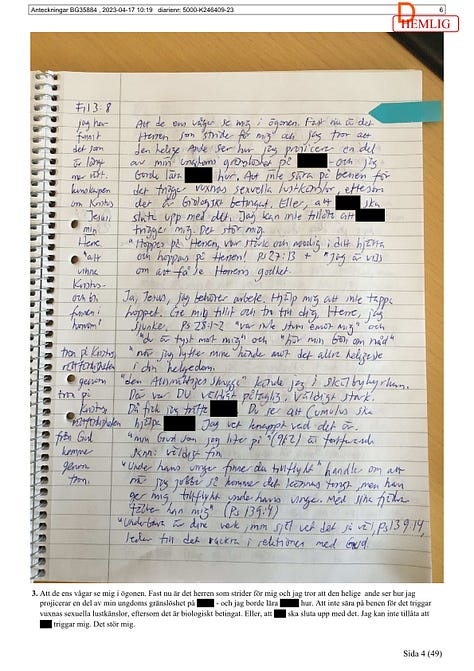 Anteckningar BG35884 , 2023-04-17 10:19 diarienr: 5000-K246409-23
6
D
HEMLIG
Fil 3:8
jag har
funnit
det som
är långt
mer värt.
kunskapen
om Kristus
Jesus,
min
Herre.
"att
vinna
Kristus
och bli
funnen i
honom"
tron på Kristus,
rättfärdigheten
genom
tron på
Kristus
rättfärdigheten
från Gud
kommer
genom
tron.
Att de ens vågar se mig i ögonen. Fast nu är det
Herren som strider för mig och jag tror att
den helige Ande ser hur jag projicerar en del
av min ungdoms gränslöshet på - och jag
borde lära hur. Att inte sära på benen för
det triggar vuxnas sexuella lustkänslor, eftersom
det är biologiskt betingat. Eller, att ska
sluta upp med det. Jag kan inte tillåta att
triggar mig. Det stör mig.
"Hoppas på Herren, var stark och modig i ditt hjärta
och hoppas på Herren! Ps 27:13 + "Jag är viss
om att få se Herrens godhet.
Ja, Jesus, jag behöver arbete. Hjälp mig att inte tappa
hoppet. Ge mig tillit och tro till dig Herre, jag
sjunker. Ps 28:1-2 "var inte stum emot mig" och
"du är tyst mot mig" och "hör min bön om nåd"
"när jag lyfter mina händer mot det allra heligaste
i din helgedom.
"den Allsmäktiges skugga" kände jag i
Där var DU väldigt påtaglig, väldigt stark.
Då fick jag träffa Du ser att Cumulus ska
hjälpa Jag vet knappt vad det är.
"min Gud som jag litar på" (91:2) är fortfarande
väldigt fin
"Under hans vingar finner du tillflykt" handlar om att
när jag jobbar så kommer det kännas tungt, men han
ger mig tillflykt under hans vingar. Med sina fjädrar
täcker han mig" (Ps 139:4)
"Underbara är dina verk, min själ vet det så väl, Ps 139:14,
leder till det vackra i relationen med Gud.
3. Att de ens vågar se mig i ögonen. Fast nu är det herren som strider för mig och jag tror att den helige ande ser hur jag
projicerar en del av min ungdoms gränslöshet på - och jag borde lära hur. Att inte sära på benen för det triggar
vuxnas sexuella lustkänslor, eftersom det är biologiskt betingat. Eller, att ska sluta upp med det. Jag kan inte tillåta att
triggar mig. Det stör mig.
Sida 4 (49)